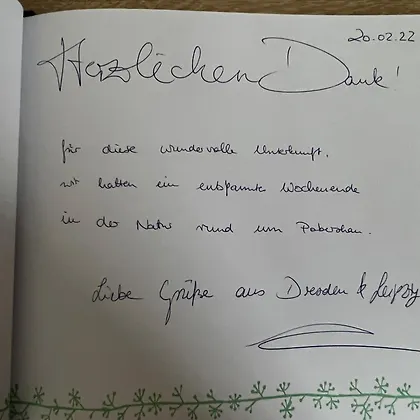 20.02.22
Herzlichen Dank!
für diese wundervolle Unterkunft.
wir hatten ein entspannte Wochenende
in der Natur rund um
Liebe Grüße aus Dresden & Leipzig